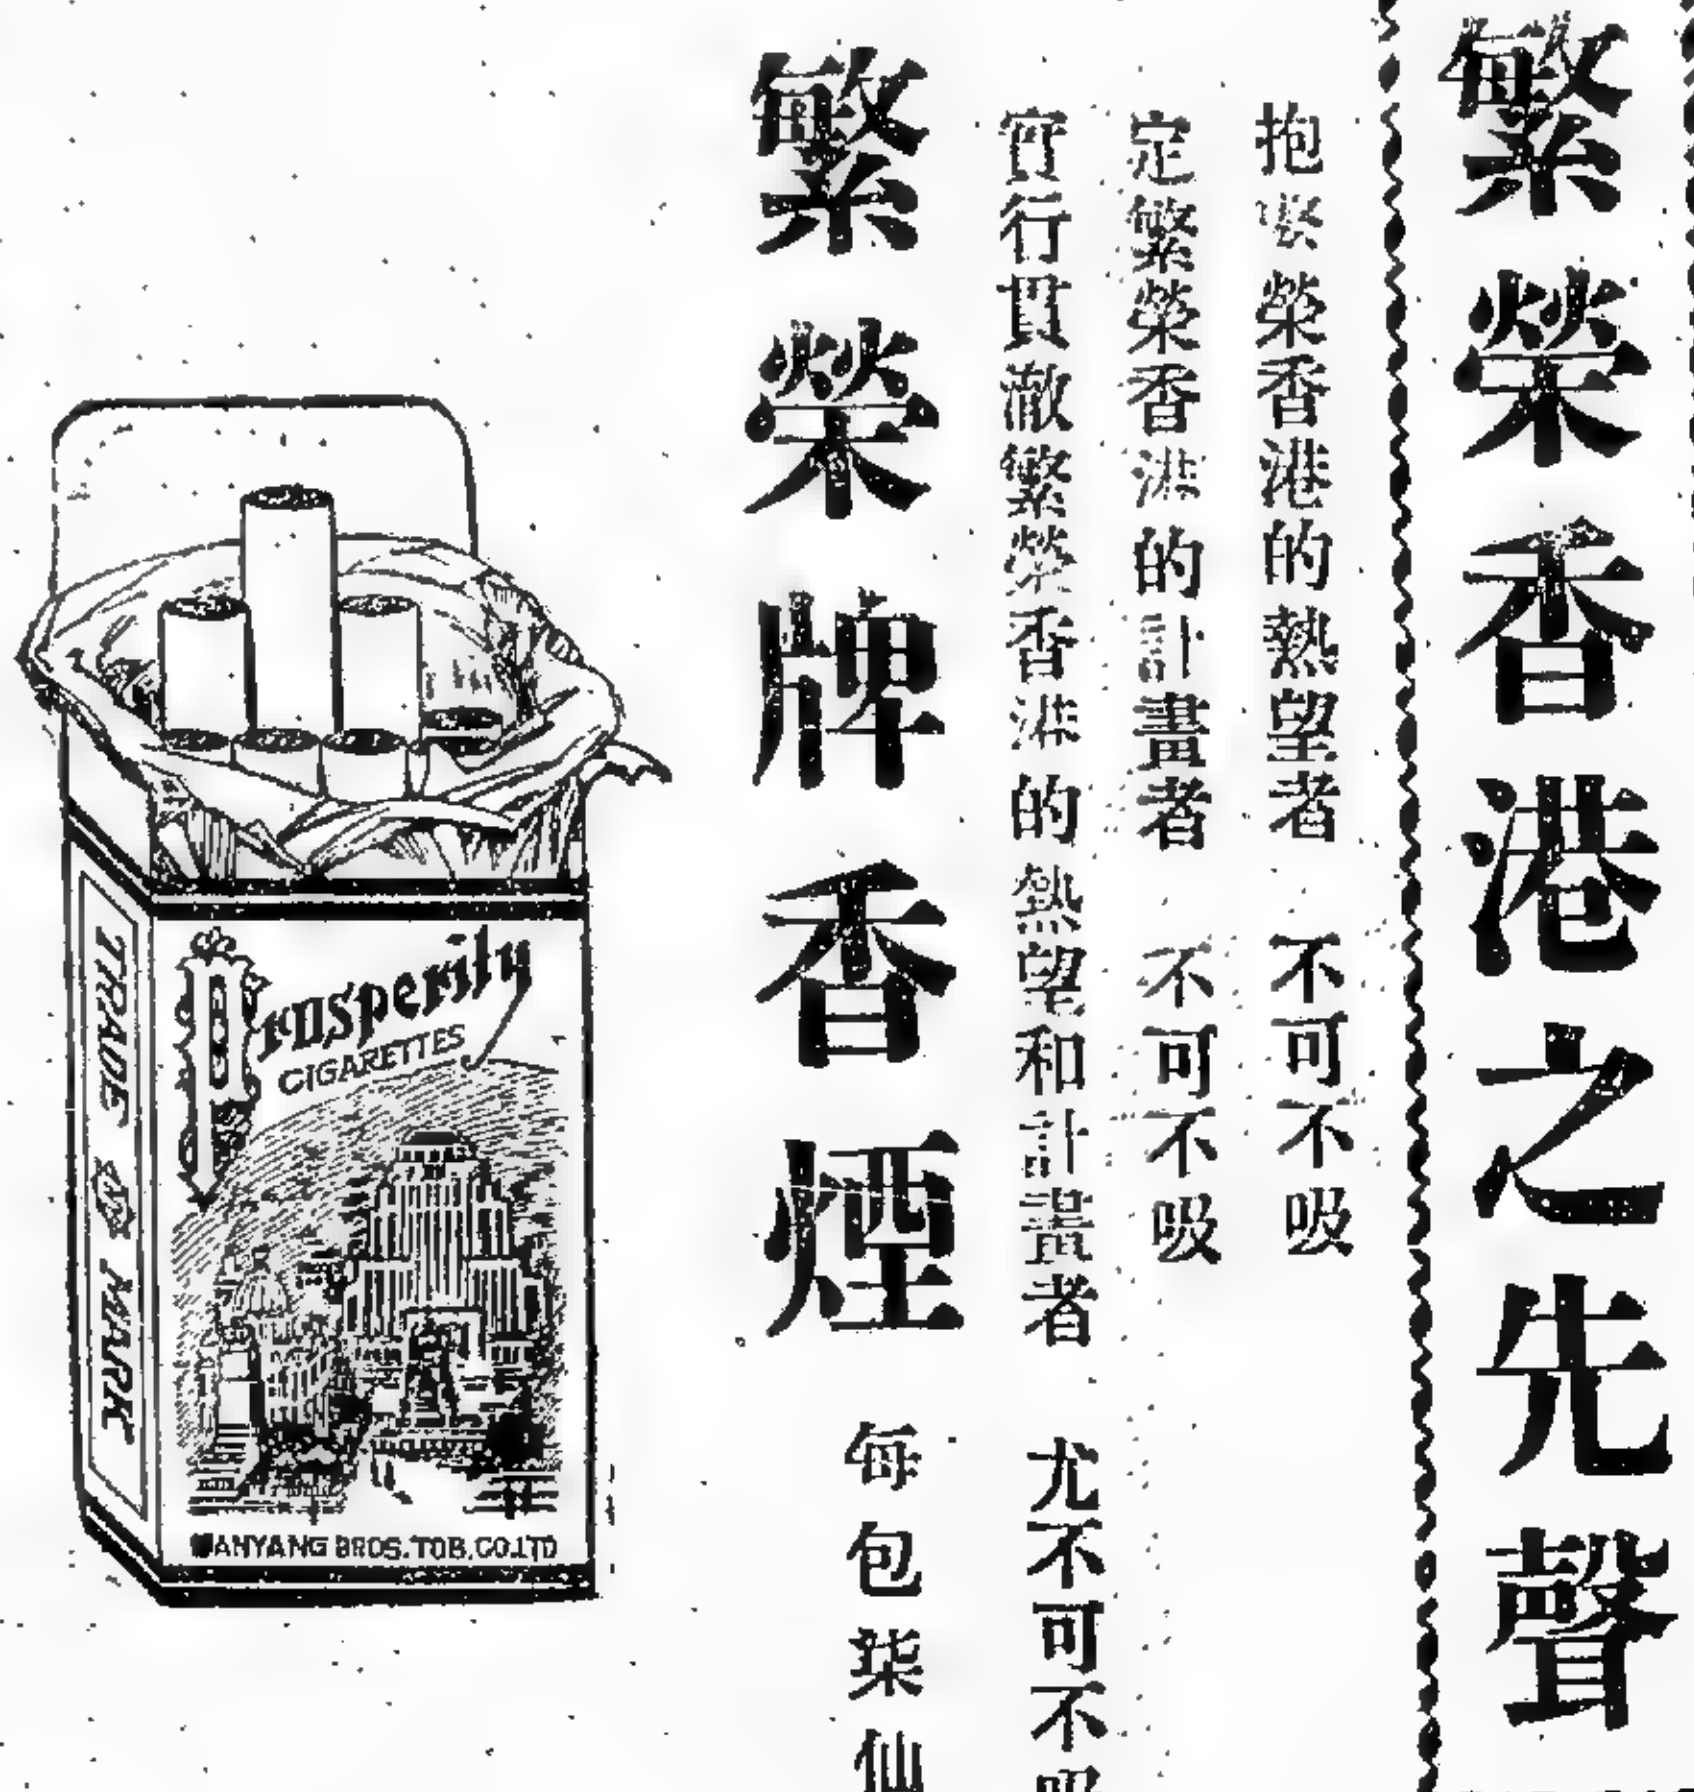 繁榮香港之先聲
抱繁榮香港的熱望者 不可不吸
定繁榮香港的計畫者 不可不吸
實行貫澈繁榮香港的熱望和計畫者 尤不可不吸
繁榮牌香煙
每包柒仙
Prosperity
CIGARETTES
TRADE MARK
NANYANG BROS. TOB. CO. LTD